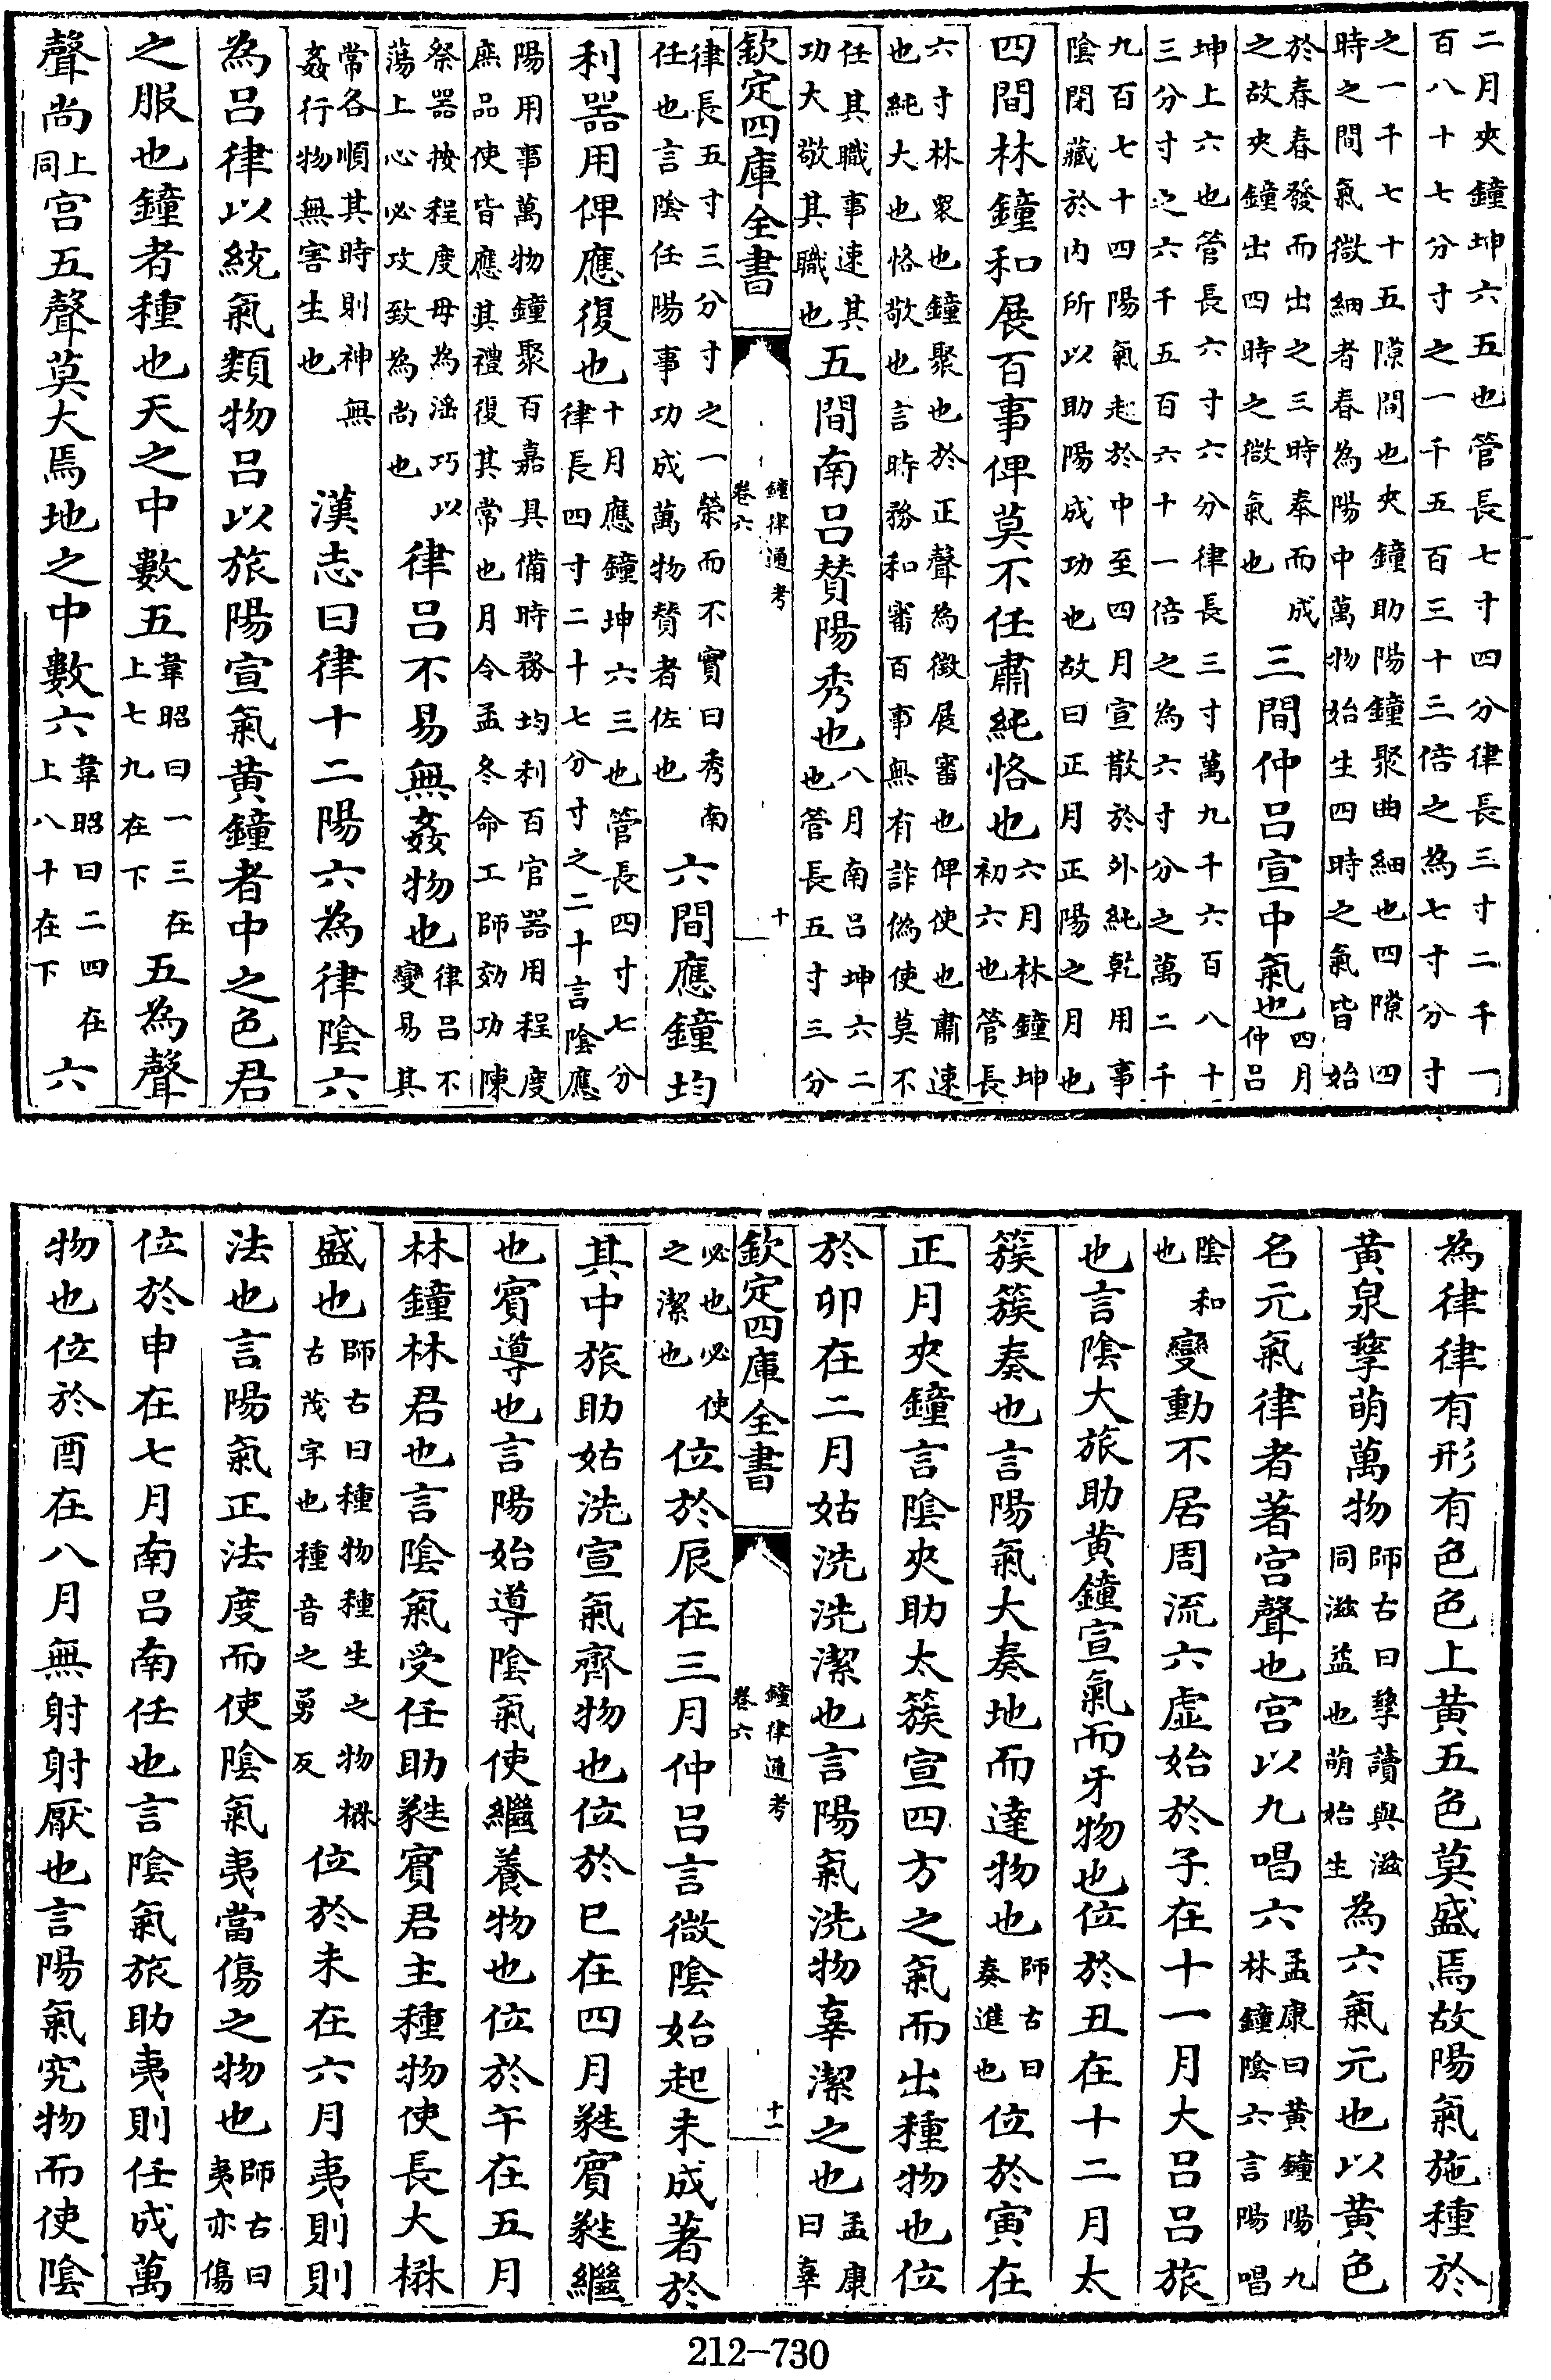 二月夾鐘坤六五也管長七寸四分律長三寸二千一
百八十七分寸之一千五百三十三倍之為七寸分寸
之一千七十五隙間也夾鐘助陽鐘聚曲細也四隙四
時之間氣微細者春為陽中萬物始生四時之氣皆始
於春春發而出之三時奉而成
之故夾鐘出四時之微氣也
三間仲呂宣中氣也
四月
仲呂
坤上六也管長六寸六分律長三寸萬九千六百八十
三分寸之六千五百六十一倍之為六寸分之萬二千
九百七十四陽氣起於中至四月宣散於外純乾用事
陰閉藏於内所以助陽成功也故曰正月正陽之月也
四間林鐘和展百事俾莫不任肅純恪也
六月林鐘坤
初六也管長
六寸林衆也鐘聚也於正聲為徵展審也俾使也肅速
也純大也恪敬也言時務和審百事無有詐偽使莫不
任其職事速其
功大敬其職也
五間南呂賛陽秀也
八月南呂坤六二
也管長五寸三分
欽定四庫全書
鐘律通考
卷六
十
律長五寸三分寸之一榮而不實曰秀南
任也言陰任陽事功成萬物賛者佐也
六間應鐘均
利器用俾應復也
十月應鐘坤六三也管長四寸七分
律長四寸二十七分寸之二十言陰應
陽用事萬物鐘聚百嘉具備時務均利百官器用程度
庶品使皆應其禮復其常也月令孟冬命工師効功陳
祭器按程度毋為滛巧以
蕩上心必攻致為尚也
律呂不易無姦物也
律呂不
變易其
常各順其時則神無
姦行物無害生也
漢志曰律十二陽六為律陰六
為呂律以統氣類物呂以旅陽宣氣黄鐘者中之色君
之服也鐘者種也天之中數五
韋昭曰一三在
上七九在下
五為聲
聲尚
上
同
宫五聲莫大焉地之中數六
韋昭曰二四在
上八十在下
六
為律律有形有色色上黄五色莫盛焉故陽氣施種於
黄泉孳萌萬物
師古曰孳讀與滋
同滋益也萌始生
為六氣元也以黄色
名元氣律者著宫聲也宫以九唱六
孟康曰黄鐘陽九
林鐘陰六言陽唱
陰和
也
變動不居周流六虚始於子在十一月大呂呂旅
也言陰大旅助黄鐘宣氣而牙物也位於丑在十二月太
簇簇奏也言陽氣大奏地而達物也
師古曰
奏進也
位於寅在
正月夾鐘言陰夾助太簇宣四方之氣而出種物也位
於卯在二月姑洗洗潔也言陽氣洗物辜潔之也
孟康
曰辜
欽定四庫全書
鐘律通考
卷六
十一
必也必使
之潔也
位於辰在三月仲呂言微陰始起未成著於
其中旅助姑洗宣氣齊物也位於巳在四月蕤賓蕤繼
也賓導也言陽始導陰氣使繼養物也位於午在五月
林鐘林君也言陰氣受任助蕤賓君主種物使長大楙
盛也
師古曰種物種生之物楙
古茂字也種音之勇反
位於未在六月夷則則
法也言陽氣正法度而使陰氣夷當傷之物也
師古曰
夷亦傷
位於申在七月南呂南任也言陰氣旅助夷則任成萬
物也位於酉在八月無射射厭也言陽氣究物而使陰
212-730